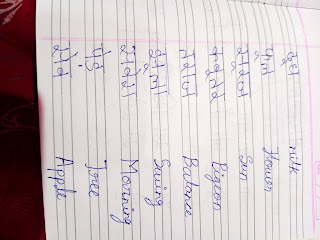 दूध milk
फूल Flower
सूरज Sun
कबूतर Pigeon
Balance
झूला Swing
सवेरा Morning
पेड़ Tree
सेब Apple